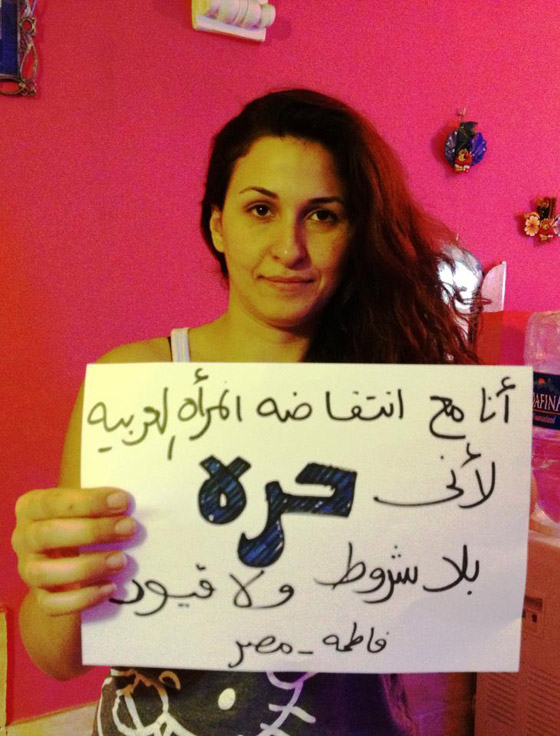 أنا مع انتفاضه المرأه العربيه
لأنى حرة
بلا شروط ولا قيود
فاطمه - مصر
AFINA